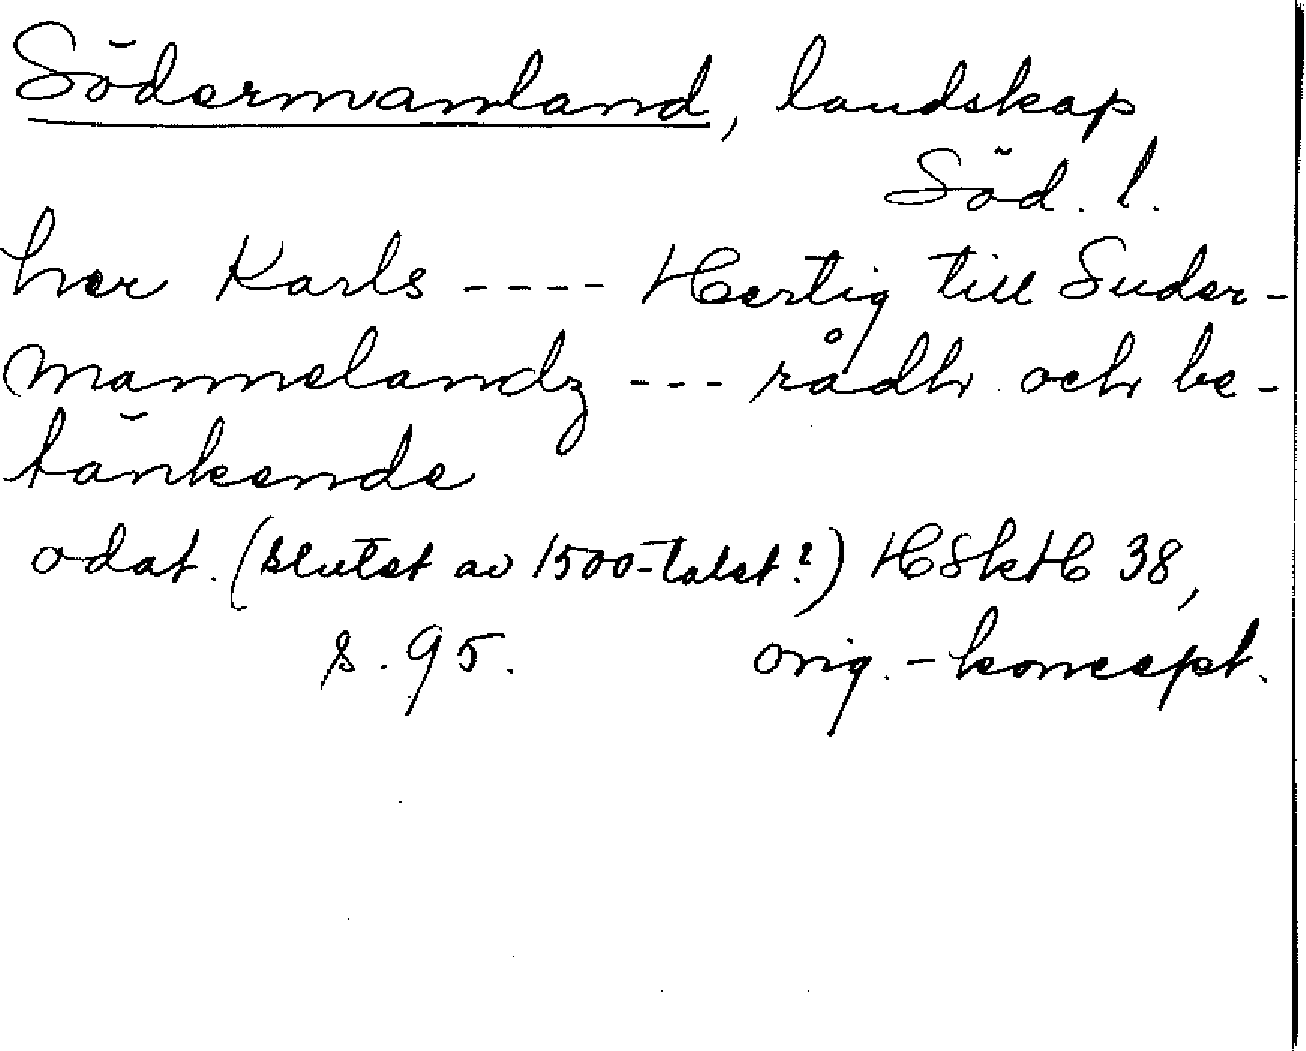 Södermanland, landskap
Söd. l.
her Karls ---- Hertig till Suder-
mannelandz --- rådh och be-
tänkende
odat. (slutet av 1500-talet?) HSkH 38,
s. 95. orig.-koncept.